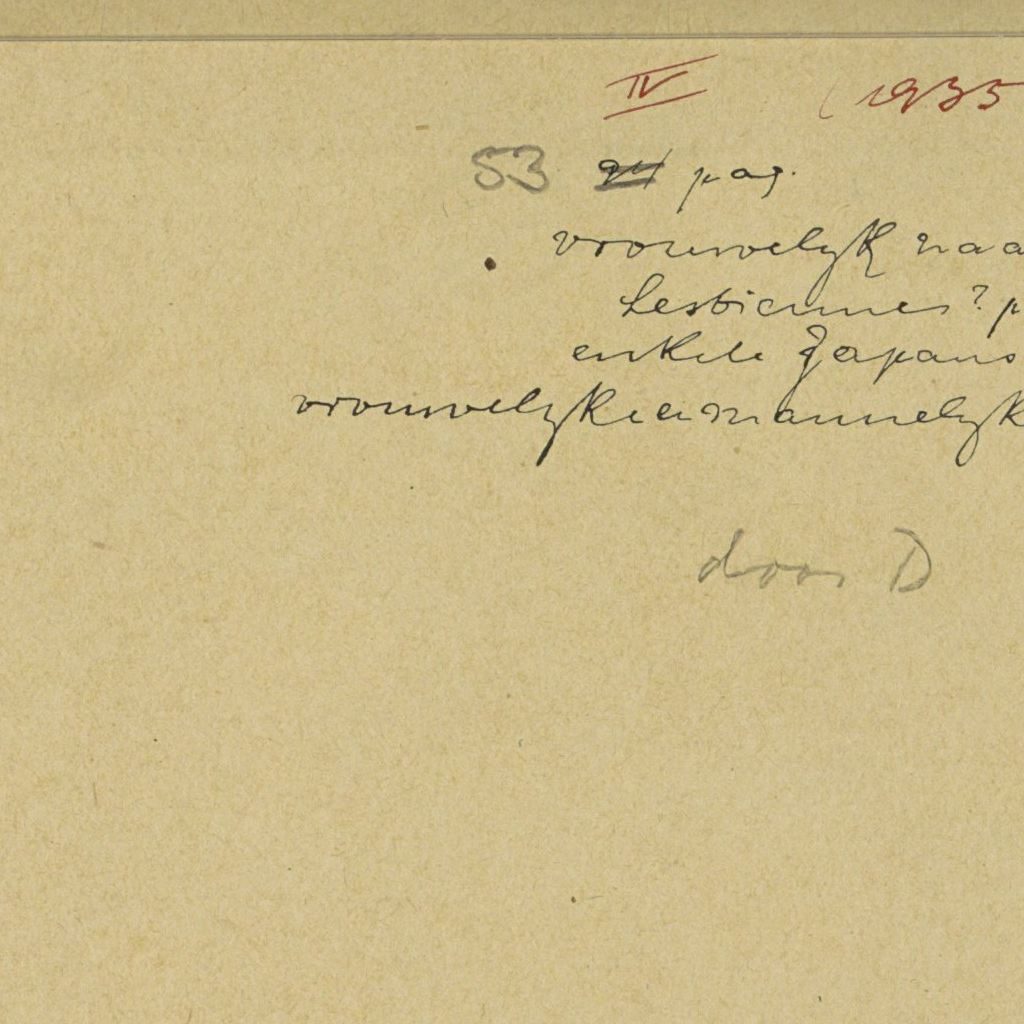 IV (1935
53 pag.
vrouwelyk naa
Lesbiennes? p
enkele Japans
vrouwelyke en mannelyk
door D